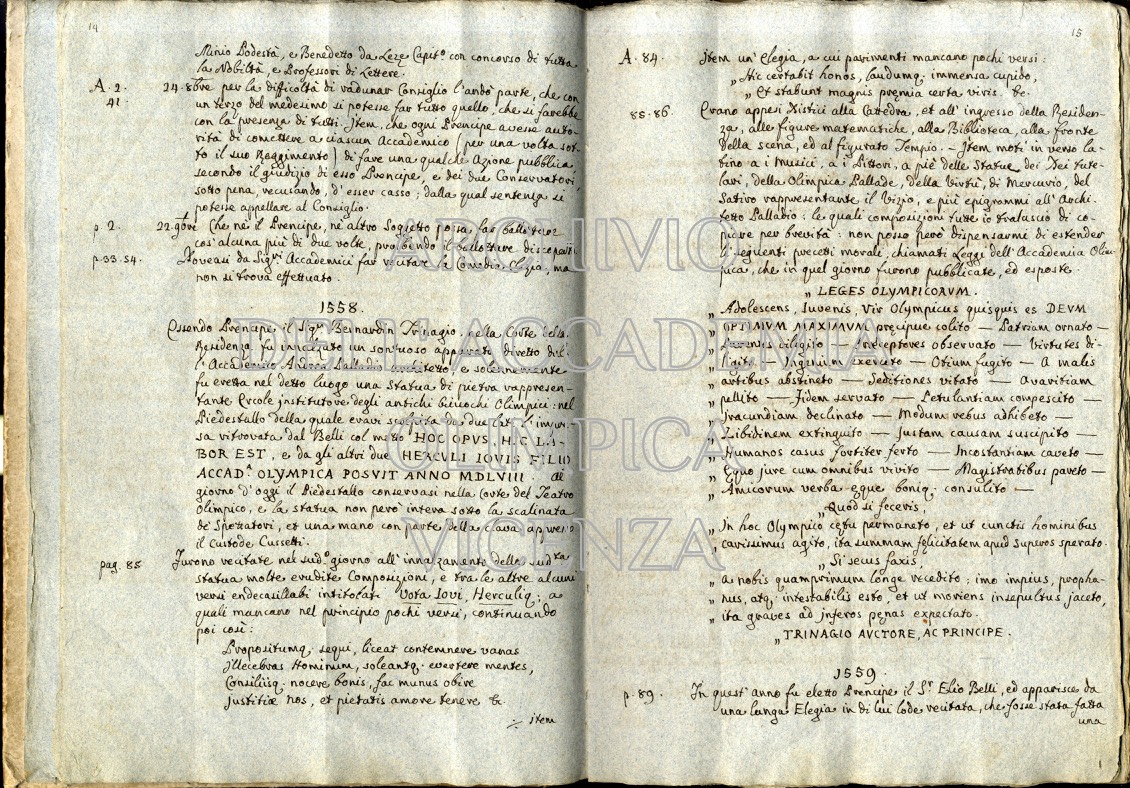 14
Minio Podestà, e Benedetto da Leze Capit.º con concorso di tutta
la Nobiltà, e Professori di Lettere.
A. 2. 24. 8bre per la difficoltà di radunar Consiglio l'andò parte, che con
41 un terzo del medesimo si potesse far tutto quello, che si farebbe
con la presenza di tutti. Item, che ogni Prencipe avesse auto-
rità di comettere a ciascun Accademico (per una volta sot-
to il suo Reggimento) di fare una qualche Azione pubblica
secondo il giudizio di esso Prencipe, e dei due Conservatori,
sotto pena, recusando, d'esser casso; dalla qual sentenza si
potesse appellare al Consiglio.
p. 2. 22. 9bre Che nè il Prencipe, nè altro Sogetto possa far ballottar
cos'alcuna più di due volte, proibendo il ballottare
p. 33. 54. Doveasi da Sigri Accademici far recitar la Comedia, Elegia, ma
non si trova effettuato.
1558.
Essendo Prencipe il Sigr Bernardin Trinagio, nella Corte della
Residenza fu innalzato un sontuoso apparato diretto dal-
l'Accademico Andrea Palladio architetto, e solennemente
fu eretta nel detto luogo una Statua di pietra rappresen-
tante Ercole institutore degli antichi Giuochi Olimpici: nel
Piedestallo della quale eravi scolpita da due lati l'impre-
sa ritrovata dal Belli col motto HOC OPVS, HIC LA-
BOR EST, e da gli altri due HERCVLI IOVIS FILIO
ACCAD.ª OLYMPICA POSVIT ANNO MDLVIII. al
giorno d'oggi il Piedestallo conservasi nella Corte del Teatro
Olimpico, e la statua non però intera sotto la scalinata
de' Spettatori, et una mano con parte della clava appresso
il Custode Cussetti.
pag. 85 Furono recitate nel sud.º giorno all'innalzamento della sudta
statua molte erudite Composizioni, e tra le altre alcuni
versi endecasillabi intitolati Vota Iovi, Herculiq; a
quali mancano nel principio pochi versi, continuando
poi così:
Propositumq. sequi, liceat contemnere vanas
Illecebras Hominum, soleantq. evertere mentes,
Consiliisq. nocere bonis, fac munus obire
Justitiæ nos, et pietatis amore tenere &.
item
15
A. 84. Item un'Elegia, a cui parimenti mancano pochi versi:
„ Hic certabit honos, laudumq. immensa cupido,
„ Et stabunt magnis pręmia certa viris. &c.
85-86. Erano appesi Distici alla Cattedra, et all'ingresso della Residen-
za, alle figure matematiche, alla Biblioteca, alla fronte
della scena, ed al figurato Tempio. - Item moti in verso la-
tino a i Musici, a i Pittori, a piè delle Statue dei Dei tute-
lari, della Olimpica Pallade, della Virtù, di Mercurio, del
Satiro rappresentante il Vizio, e più epigrammi all'Archi-
tetto Palladio: le quali composizioni tutte io tralascio di co-
piare per brevità: non posso però dispensarmi di estender
li seguenti precetti morali, chiamati Leggi dell'Accademia Olim-
pica, che in quel giorno furono pubblicate, ed esposte.
„ LEGES OLYMPICORVM.
„ Adolescens, Iuvenis, Vir Olympicus quisquis es DEVM
„ OPTIMVM MAXIMVM pręcipue colito — Patriam ornato —
„ Parentes diligito — Pręceptores observato — Virtutes di-
„ ligito — Ingenium exercito — Otium fugito — A malis
„ artibus abstineto — Seditiones vitato — Avaritiam
„ pellito — Fidem servato — Petulantiam compescito —
„ Iracundiam declinato — Modum rebus adhibeto —
„ Libidinem extinguito — Justam causam suscipito —
„ Humanos casus fortiter ferto — Inconstantiam caveto —
„ Ęquo jure cum omnibus vivito — Magistratibus pareto —
„ Amicorum verba ęque boniq. consulito —
„ Quod si feceris,
„ In hoc Olympico cętu permaneto, et ut cunctis hominibus
„ carissimus agito, ita summam fęlicitatem apud Superos sperato.
„ Si secus faxis,
„ A nobis quamprimum longe recedito; imo impius, propha-
„ nus, atq. intestabilis esto, et ut moriens insepultus jaceto,
„ ita graves ad inferos pęnas expectato.
„ TRINAGIO AVCTORE, AC PRINCIPE.
1559.
p. 89. In quest'anno fu eletto Prencipe il Sr Elio Belli, ed apparisce da
una lunga Elegia in di lui lode recitata, che fosse stata fatta
una
ARCHIVIO
DELL'ACCADEMIA
OLIMPICA
VICENZA